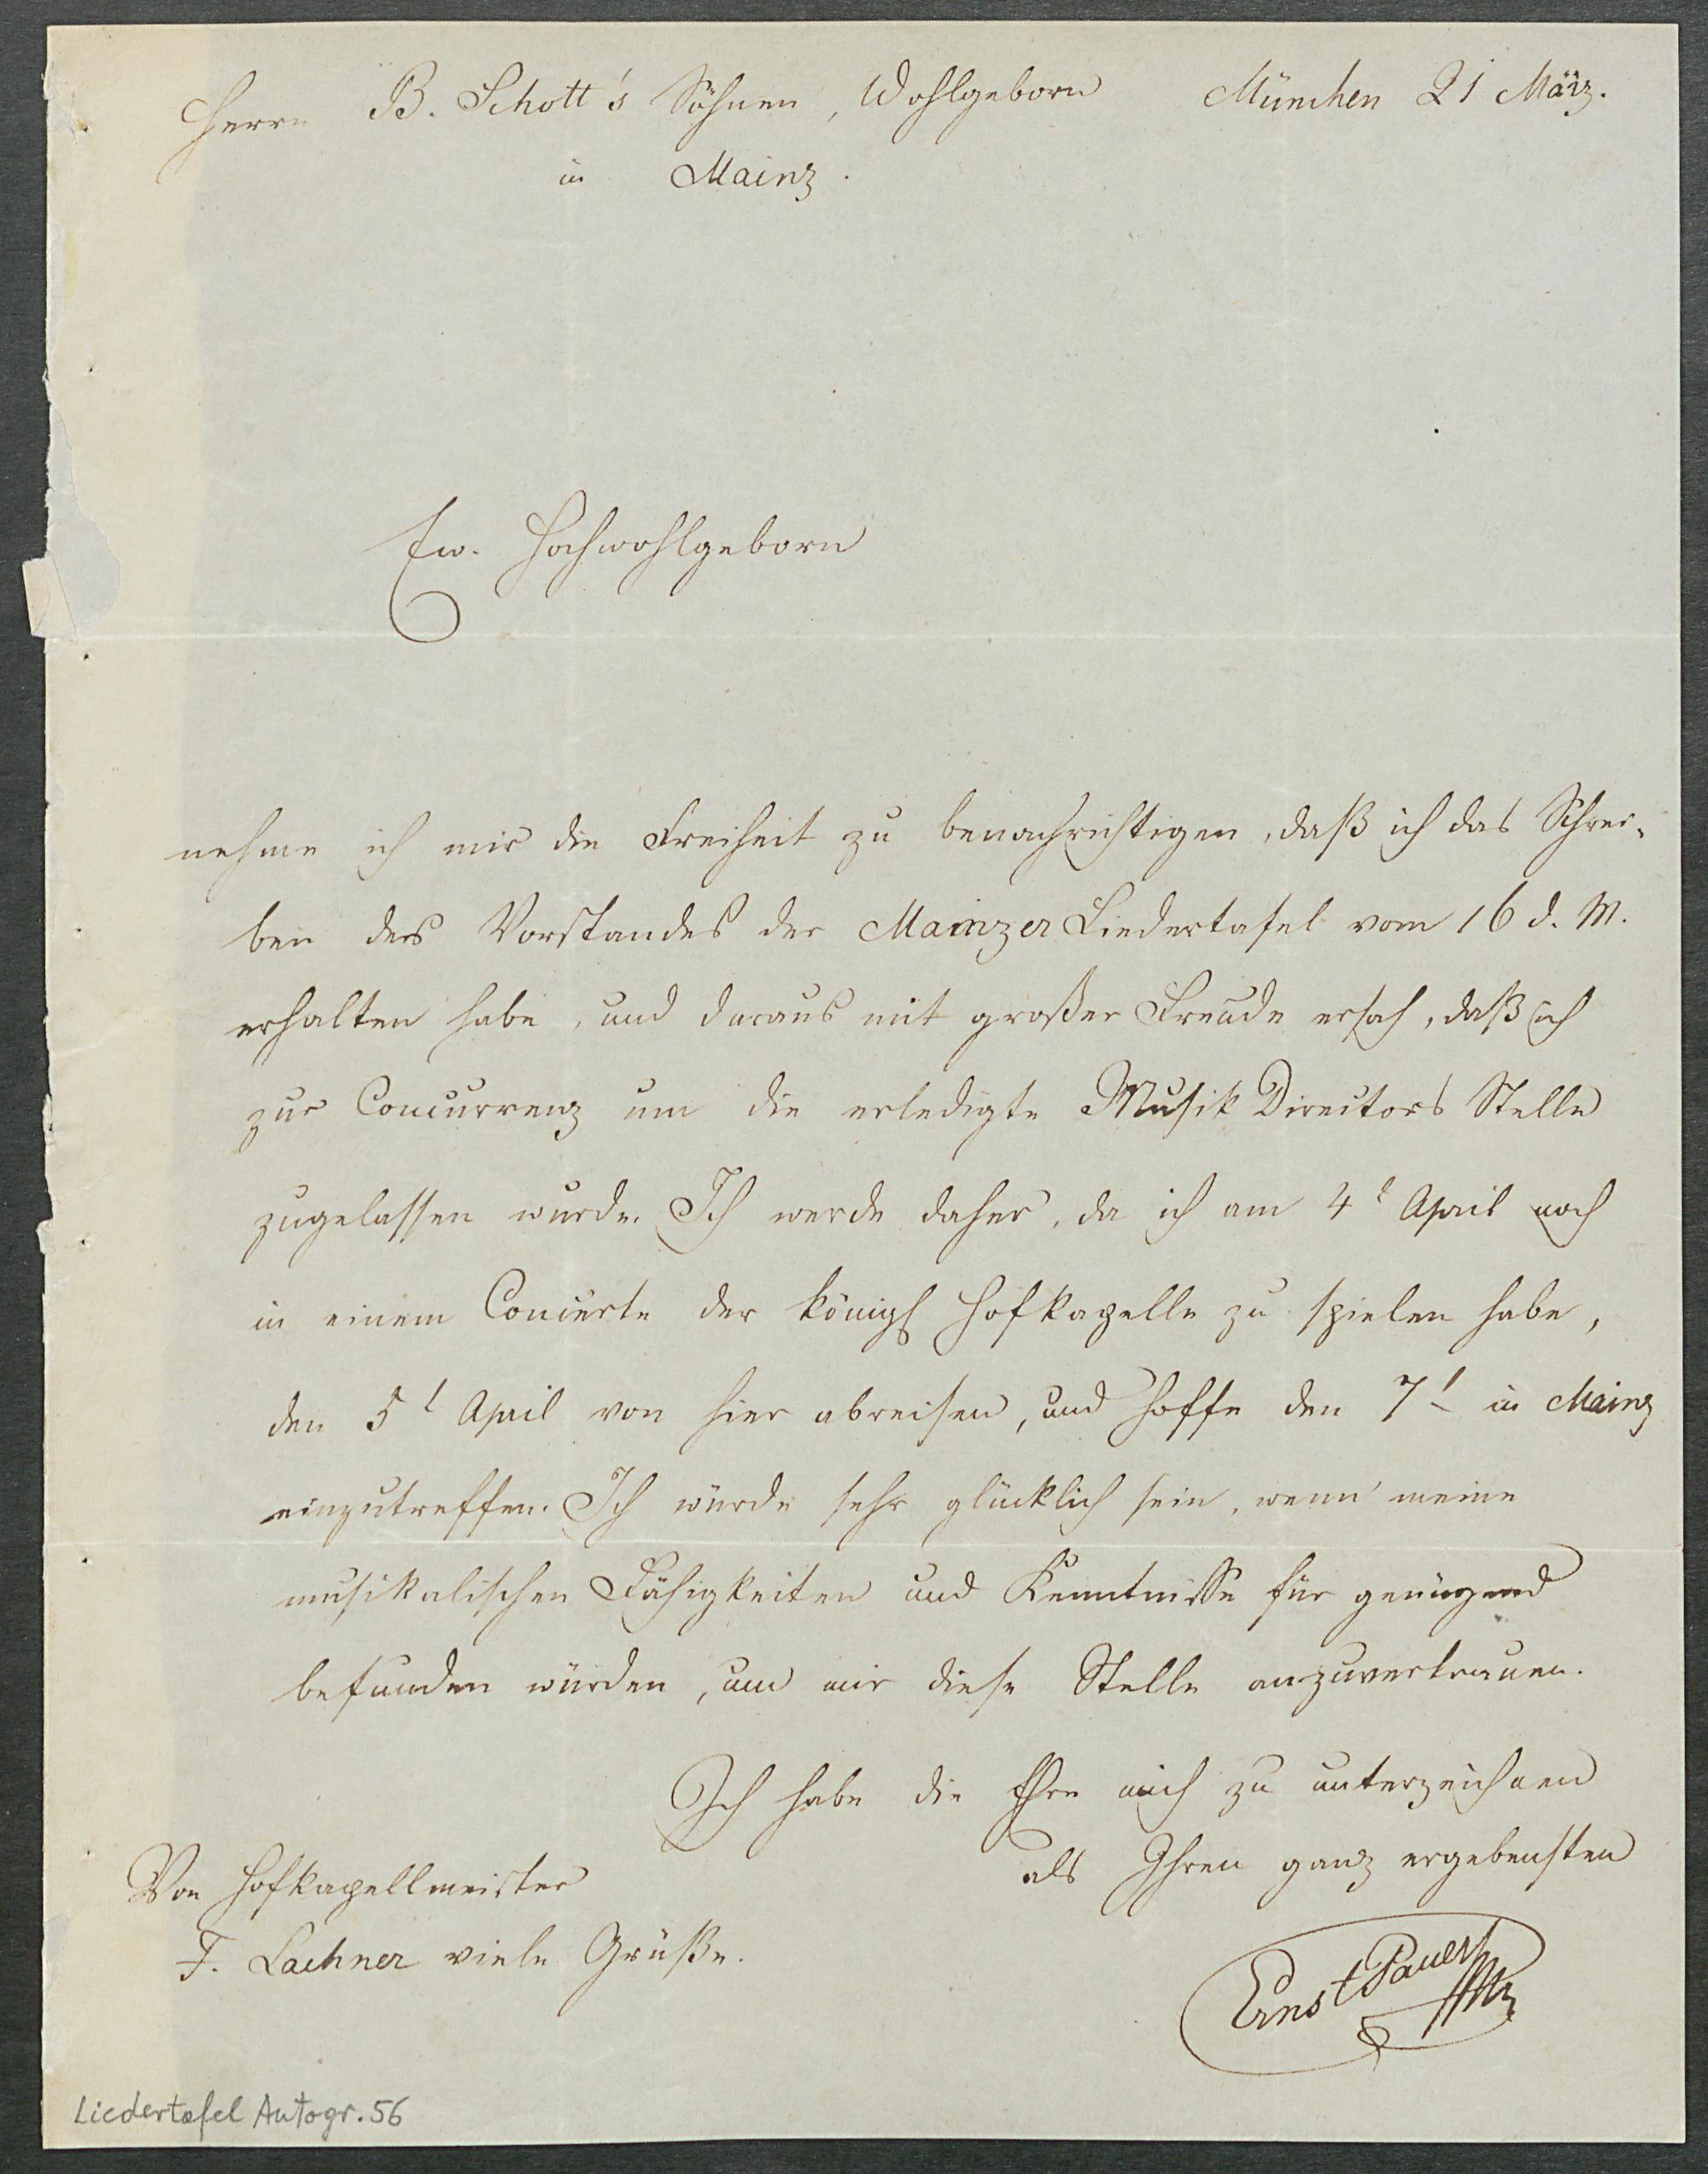 Herrn B. Schott's Söhnen, Wohlgeborn München 21 März.
in Mainz.
Ew. Hochwohlgeborn
nehme ich mir die Freiheit zu benachrichtigen, daß ich das Schrei-
ben des Vorstandes der Mainzer Liedertafel vom 16 d. M.
erhalten habe, und daraus mit großer Freude ersah, daß ich
zur Concurrenz um die erledigte Musik Directors Stelle
zugelassen wurde. Ich werde daher, da ich am 4t April noch
in einem Concerte der königl Hofkapelle zu spielen habe,
den 5t April von hier abreisen, und hoffe den 7t in Mainz
einzutreffen. Ich würde sehr glücklich sein, wenn meine
musikalischen Fähigkeiten und Kenntnisse für genügend
befunden würden, um mir diese Stelle anzuvertrauen.
Ich habe die Ehre mich zu unterzeichnen
als Ihren ganz ergebensten
Von Hofkapellmeister
F. Lachner viele Grüße.
Ernst Pauer
Liedertafel Autogr. 56